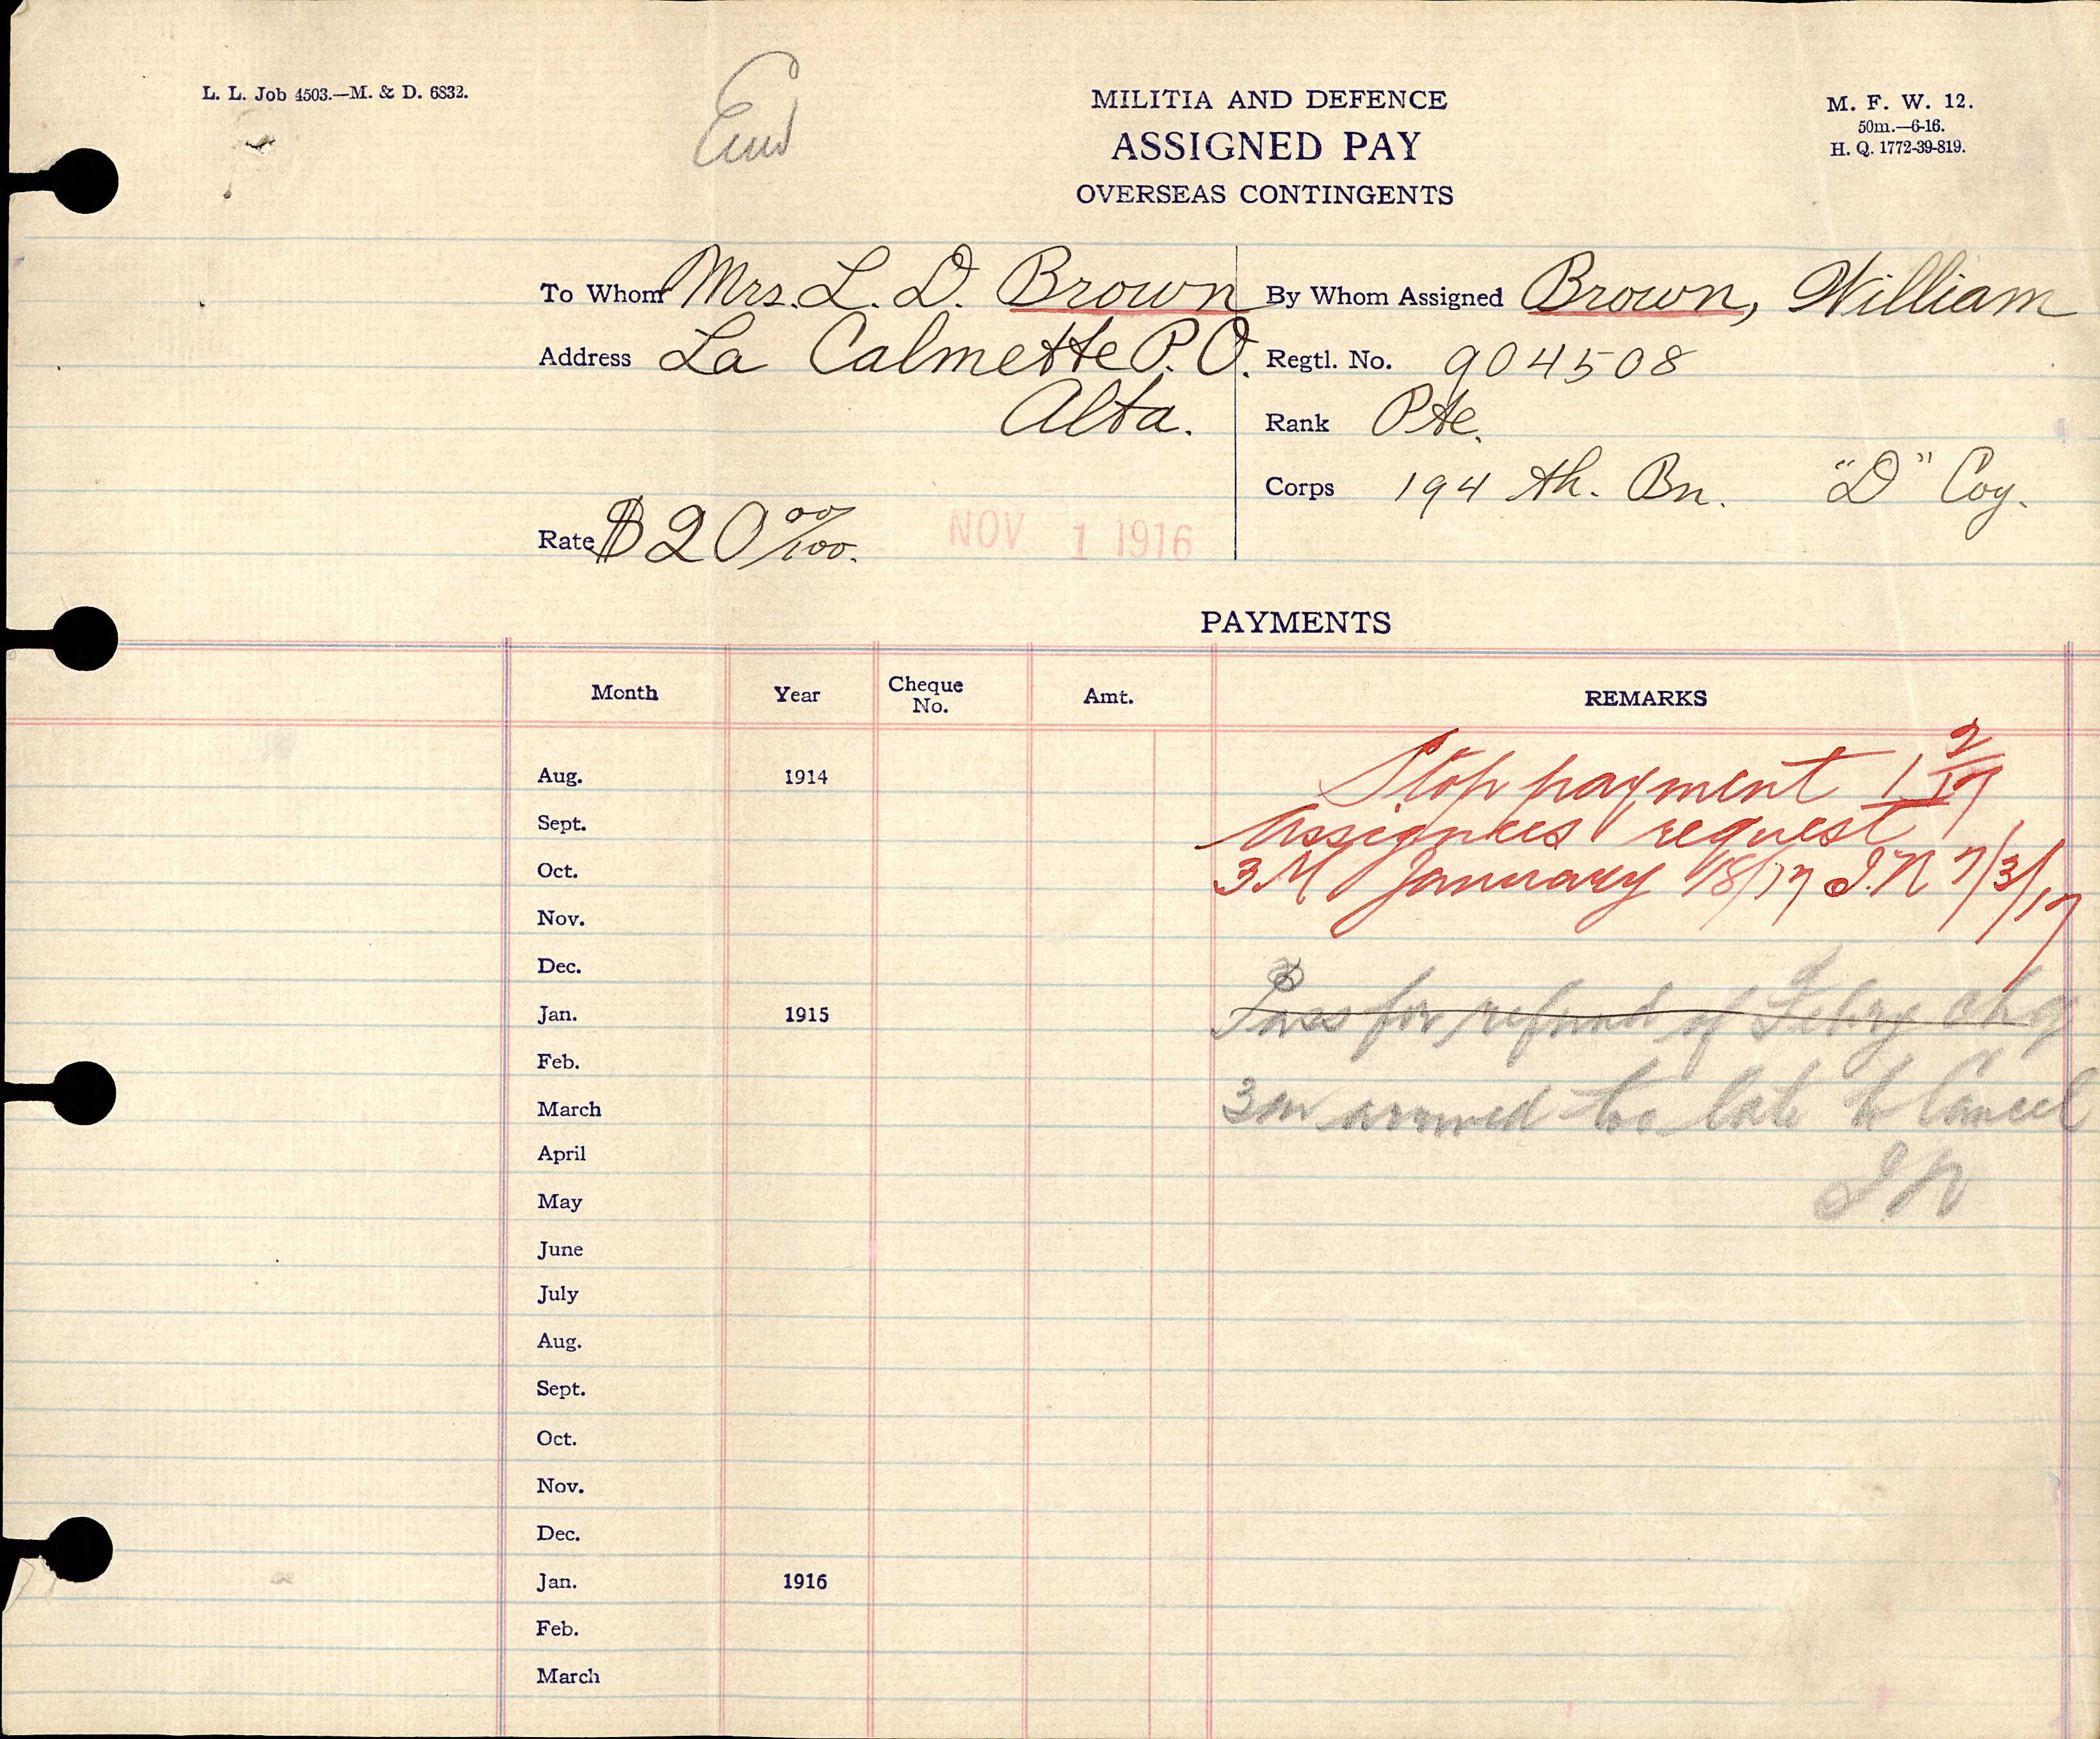 L. L. Job 4503.—M. & D. 6832.
End
MILITIA AND DEFENCE
ASSIGNED PAY
OVERSEAS CONTINGENTS
M. F. W. 12.
50m.—6-16.
H. Q. 1772-39-819.
To Whom Mrs. L. D. Brown
Address La Calmette P. O.
Alta.
Rate $20 00/100.
NOV 1 1916
By Whom Assigned Brown, William
Regtl. No. 904508
Rank Pte.
Corps 194 th. Bn. "D" Coy.
PAYMENTS
Month Year Cheque No. Amt. REMARKS
Aug. 1914
Sept.
Oct.
Nov.
Dec.
Jan. 1915
Feb.
March
April
May
June
July
Aug.
Sept.
Oct.
Nov.
Dec.
Jan. 1916
Feb.
March
Stop payment 1 2/17
Assignees request
3M January 18/17 J.N 7/3/17
Pass for refund of Febry chq
3m arrived too late to Cancel
J.N